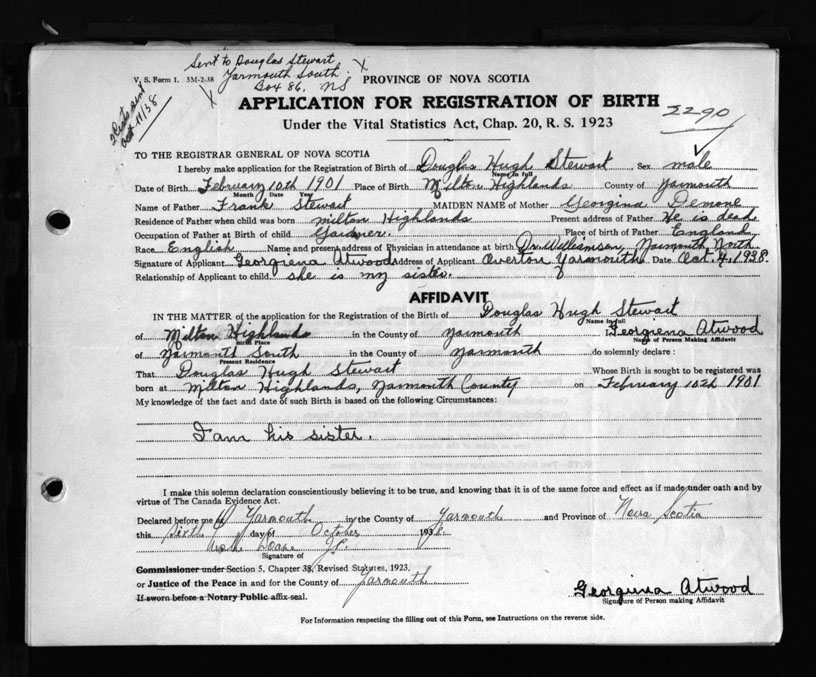 Sent to Douglas Stewart
Yarmouth South
Box 86, NS
V. S. Form 1. 5M-2-38
PROVINCE OF NOVA SCOTIA
Oct 11/38
APPLICATION FOR REGISTRATION OF BIRTH
2290
Under the Vital Statistics Act, Chap. 20, R. S. 1923
TO THE REGISTRAR GENERAL OF NOVA SCOTIA
I hereby make application for the Registration of Birth of Douglas Hugh Stewart Sex male
Name in full
Date of Birth February 10th 1901 Place of Birth Milton Highlands County of Yarmouth
Month Date Year
Name of Father Frank Stewart MAIDEN NAME of Mother Georgina Demone
Residence of Father when child was born Milton Highlands Present address of Father He is dead
Occupation of Father at Birth of child Gardner. Place of birth of Father England
Race English Name and present address of Physician in attendance at birth Dr. Williamson, Yarmouth North.
Signature of Applicant Georgiena Atwood Address of Applicant Overton Yarmouth Date Oct. 4, 1938.
Relationship of Applicant to child. she is my sister.
AFFIDAVIT
IN THE MATTER of the application for the Registration of the Birth of Douglas Hugh Stewart
Name in full
of Milton Highlands in the County of Yarmouth I, Georgiena Atwood
Birth Place Name of Person Making Affidavit
of Yarmouth South in the County of Yarmouth do solemnly declare :
Present Residence
That Douglas Hugh Stewart Whose Birth is sought to be registered was
born at Milton Highlands, Yarmouth County on February 10th 1901
My knowledge of the fact and date of such Birth is based on the following Circumstances:
I am his sister.
I make this solemn declaration conscientiously believing it to be true, and knowing that it is of the same force and effect as if made under oath and by
virtue of The Canada Evidence Act.
Declared before me at Yarmouth in the County of Yarmouth and Province of Nova Scotia
this Sixth day of October 1938.
Doane J.P.
Signature of
Commissioner under Section 5, Chapter 38, Revised Statutes, 1923,
or Justice of the Peace in and for the County of Yarmouth
If sworn before a Notary Public affix seal.
Georgiena Atwood
Signature of Person making Affidavit
For Information respecting the filling out of this Form, see Instructions on the reverse side.